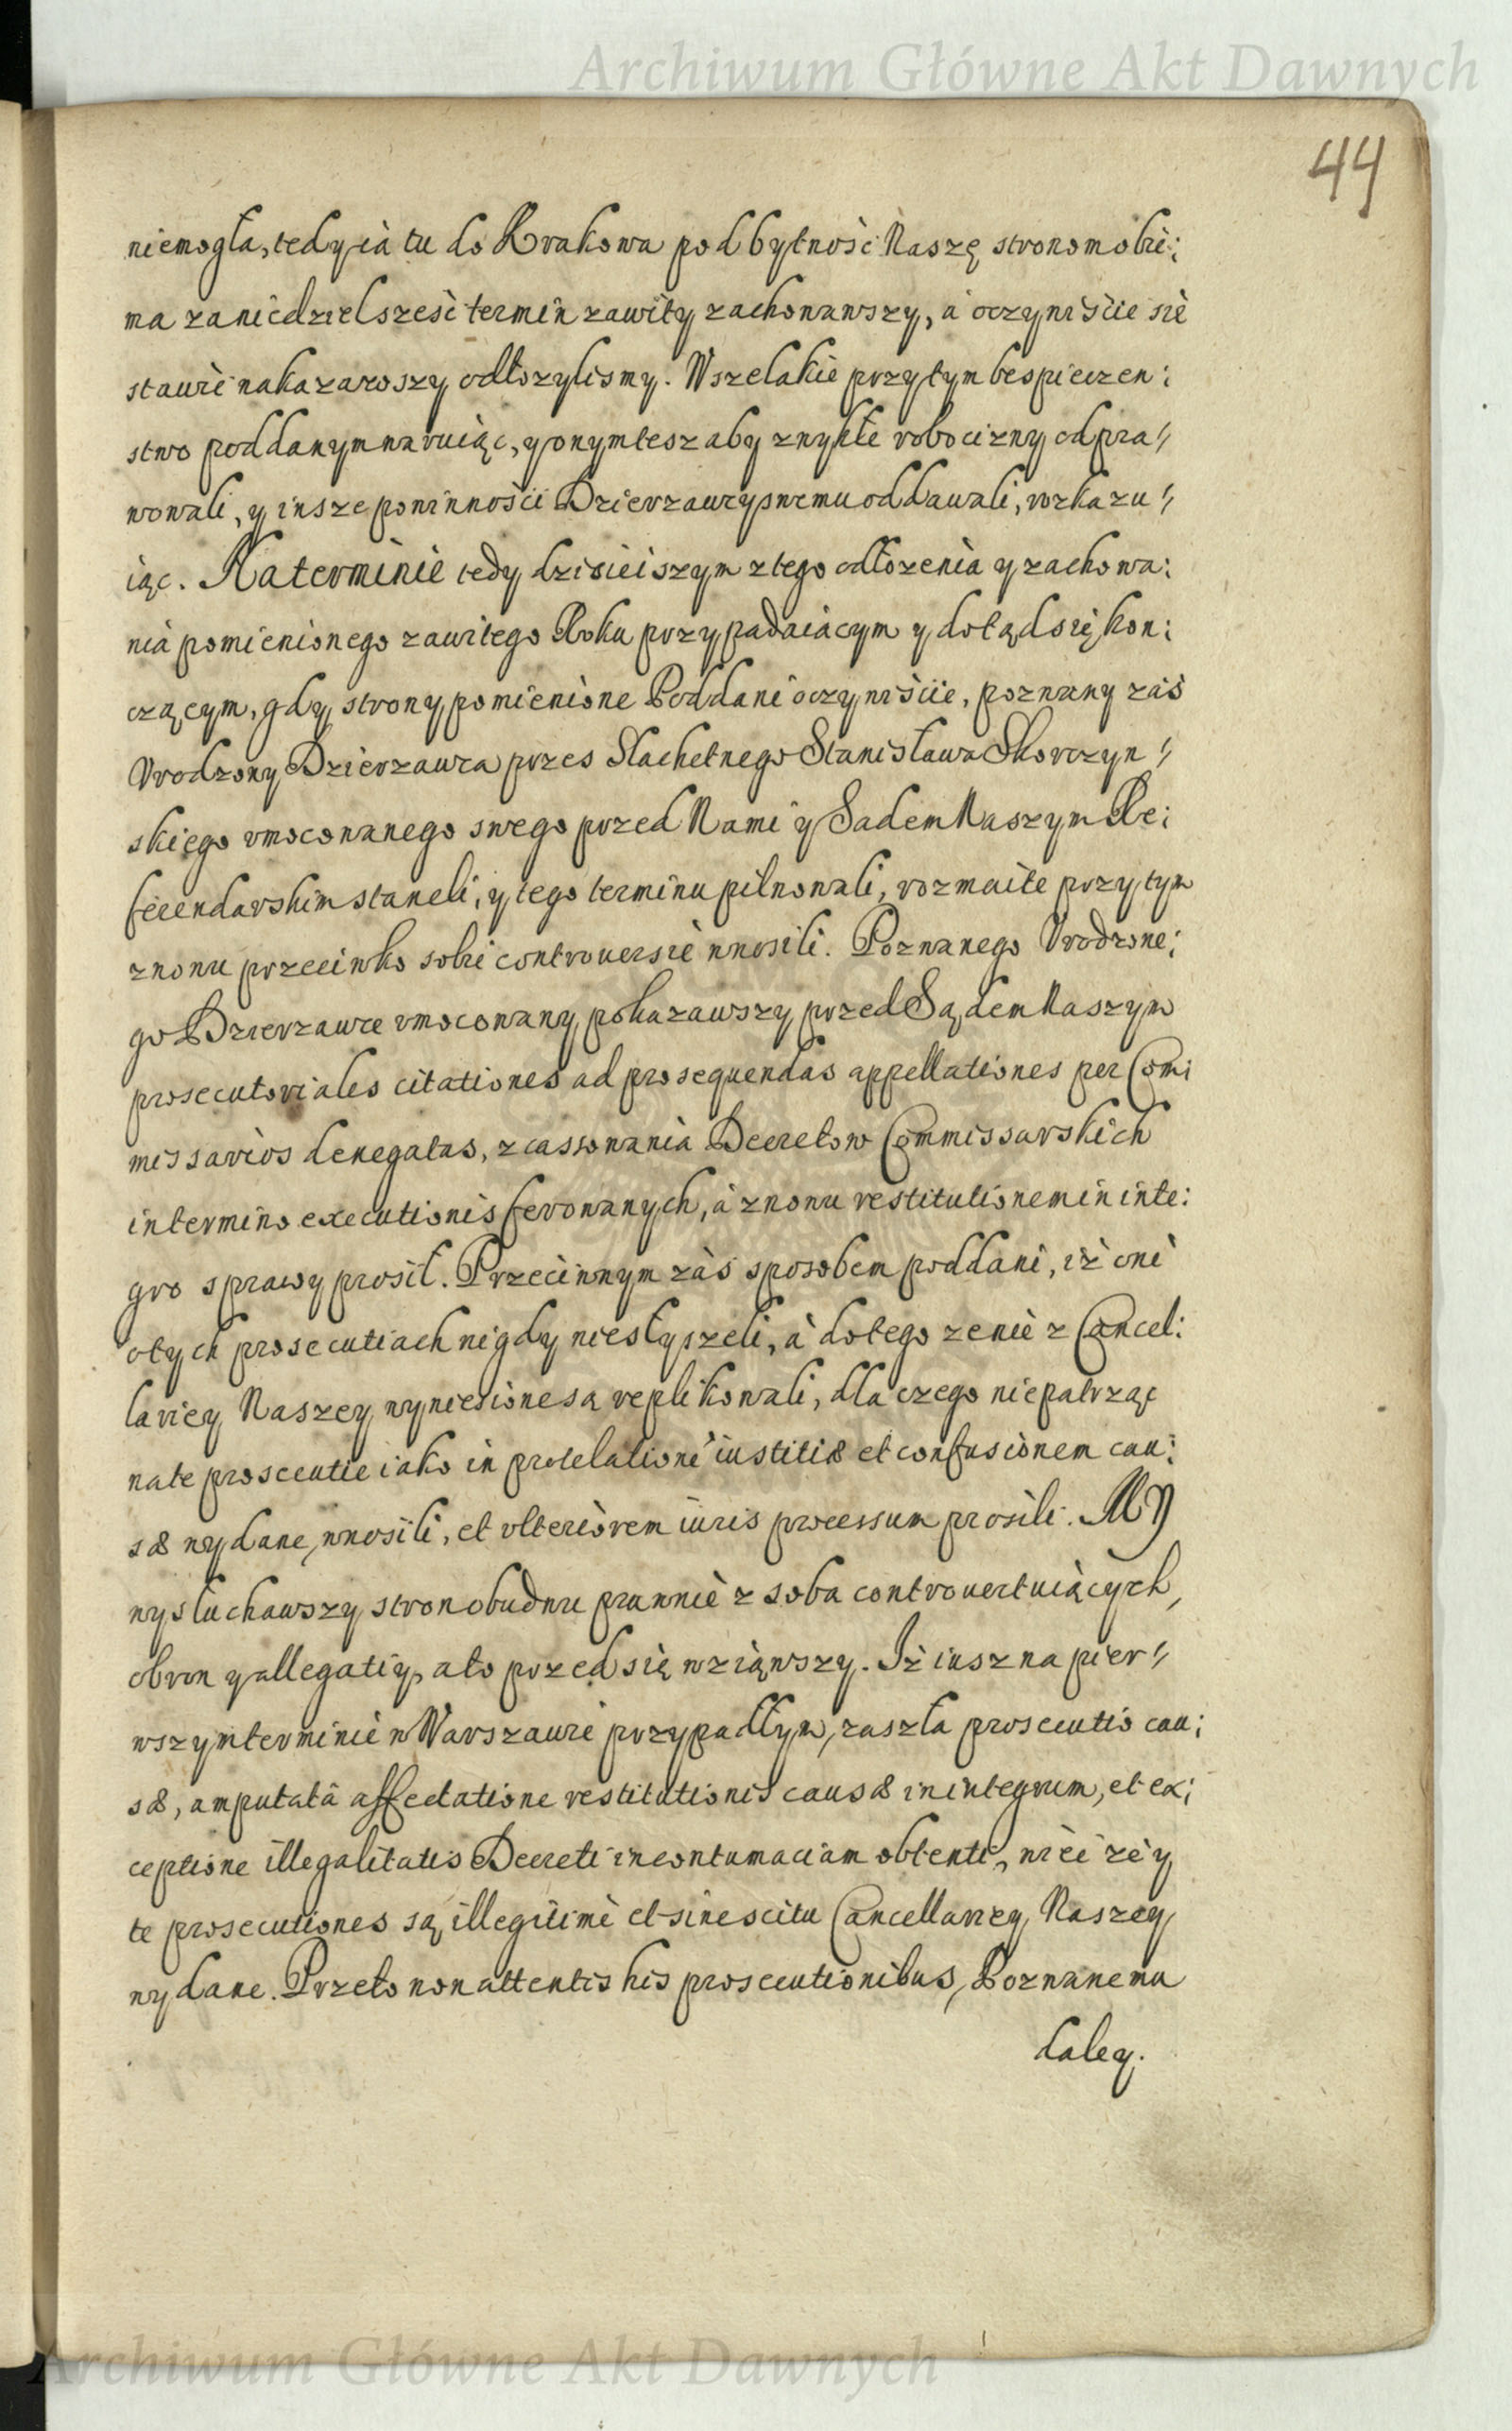 Archiwum Główne Akt Dawnych
44
niemogła, tedy ią tu do Krakowa pod bytność Naszę stronom obie:
ma za niedziel sześć termin zawity zachowawszy, á oczywiście się
stawić nakazawszy odłozylismy. Wszelakie przytym bespieczen:
stwo poddanym waruiąc, y onym tesz aby zwykłe robocizny odpra//
wowali, y insze powinności Dzierzawcy swemu oddawali, rozkazu//
iąc. Na terminie tedy dzisieiszym z tego odłozenia y zachowa:
nia pomienionego zawitego Roku przypadaiącym y dotąd się kon:
czącym, gdy strony pomienione Poddani oczywiście, pozwany zaś
Vrodzony Dzierzawca przes Slachetnego Stanisława Skorczyn//
skiego vmocowanego swego przed Nami y Sadem Naszym Re:
ferendarskim staneli, y tego terminu pilnowali, rozmaite przytym
znowu przeciwko sobie controuersie wnosili. Pozwanego Vrodzone:
go Dzierzawce vmocowany pokazawszy przed Sądem Naszym
prosecutoriales citationes ad prosequendas appellationes per Com:
missarios denegatas, z cassowania Decretow Commissarskich
in termino executionis ferowanych, á znowu restitutionem in inte:
gro sprawy prosił. Przeciwnym zaś sposobem poddani, iż oni
o tych prosecutiach nigdy niesłyszeli, à do tego ze nie z Cancel:
lariey Naszey wyniesione są replikowali, dla czego niepatrząc
na te prosecutie iako in protelationē iustitiæ et confusionem cau:
sæ wydane, wnosili, et vlteriorem iuris processum prosili. MY
wysłuchawszy stron obudwu prawnie z soba controuertuiących,
obron y allegatiy, a to przed się wziąwszy. Iż iusz na pier//
wszym terminie w Warszawie przypadłym, zaszła prosecutio cau:
sæ, amputatâ affectatione restitutionis causæ in integrum, et ex:
ceptione illegalitatis Decreti in contumaciam obtenti, więc że y
te prosecutiones są illegitimè et sine scitu Cancellariey Naszey
wydane. Przeto non attentis his prosecutionibus, Pozwanemu
daley.
Archiwum Główne Akt Dawnych